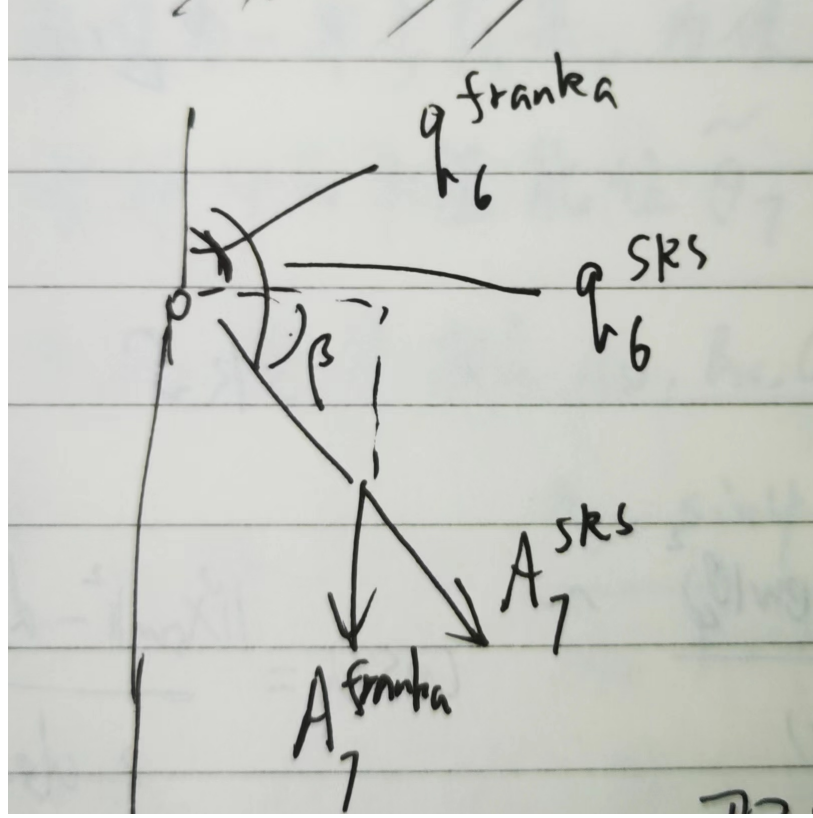 q₆^franka
q₆^SRS
β
A₇^SRS
A₇^franka